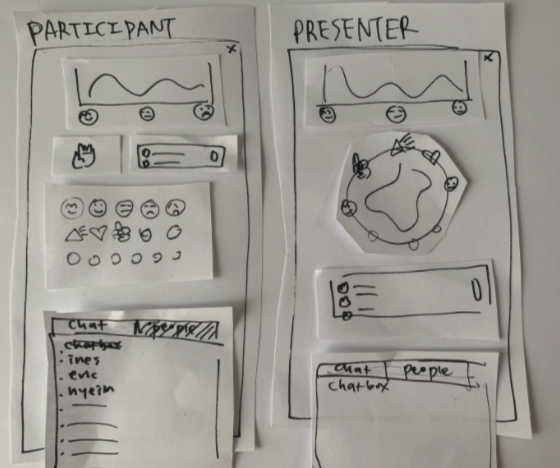 PARTICIPANT
x
chat people
chatbox
ines
eric
hyein
PRESENTER
x
chat people
chatbox